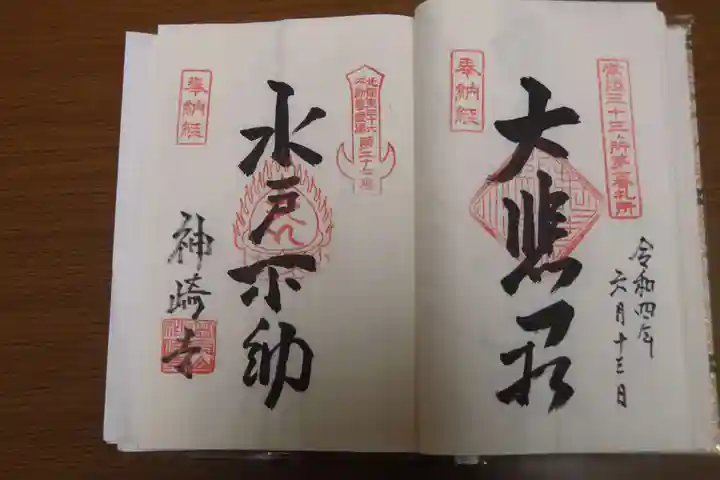 奉納経
常陸三十三所第二番札所
大悲殿
令和四年
六月十三日
奉納経
北関東三十六
不動尊霊場
第二十七番
水戸不動
神崎寺